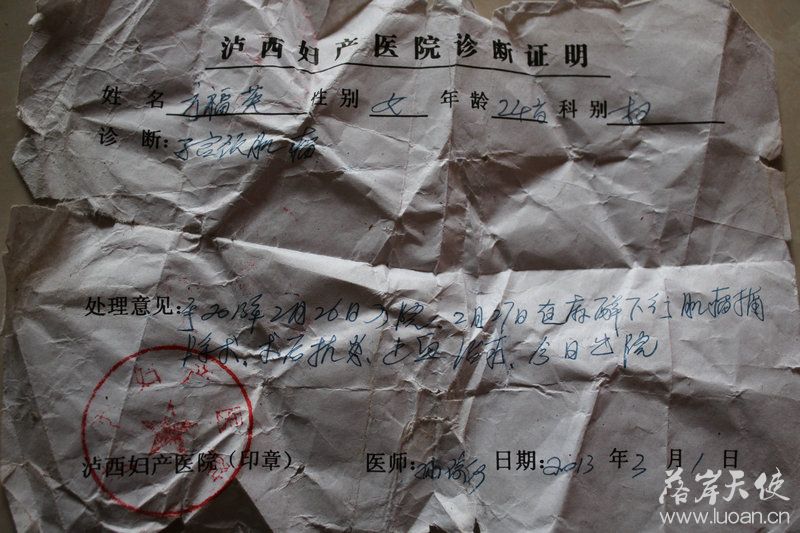 泸西妇产医院诊断证明
姓名 方福英 性别 女 年龄 24岁 科别 妇
诊断:子宫浆肌瘤
处理意见:于2013年2月26日入院,2月27日在麻醉下行肌瘤摘
除术、术后抗炎、治疗,今日出院
泸西妇产医院(印章) 医师: 日期:2013年3月1日
落岸天使
www.luoan.cn